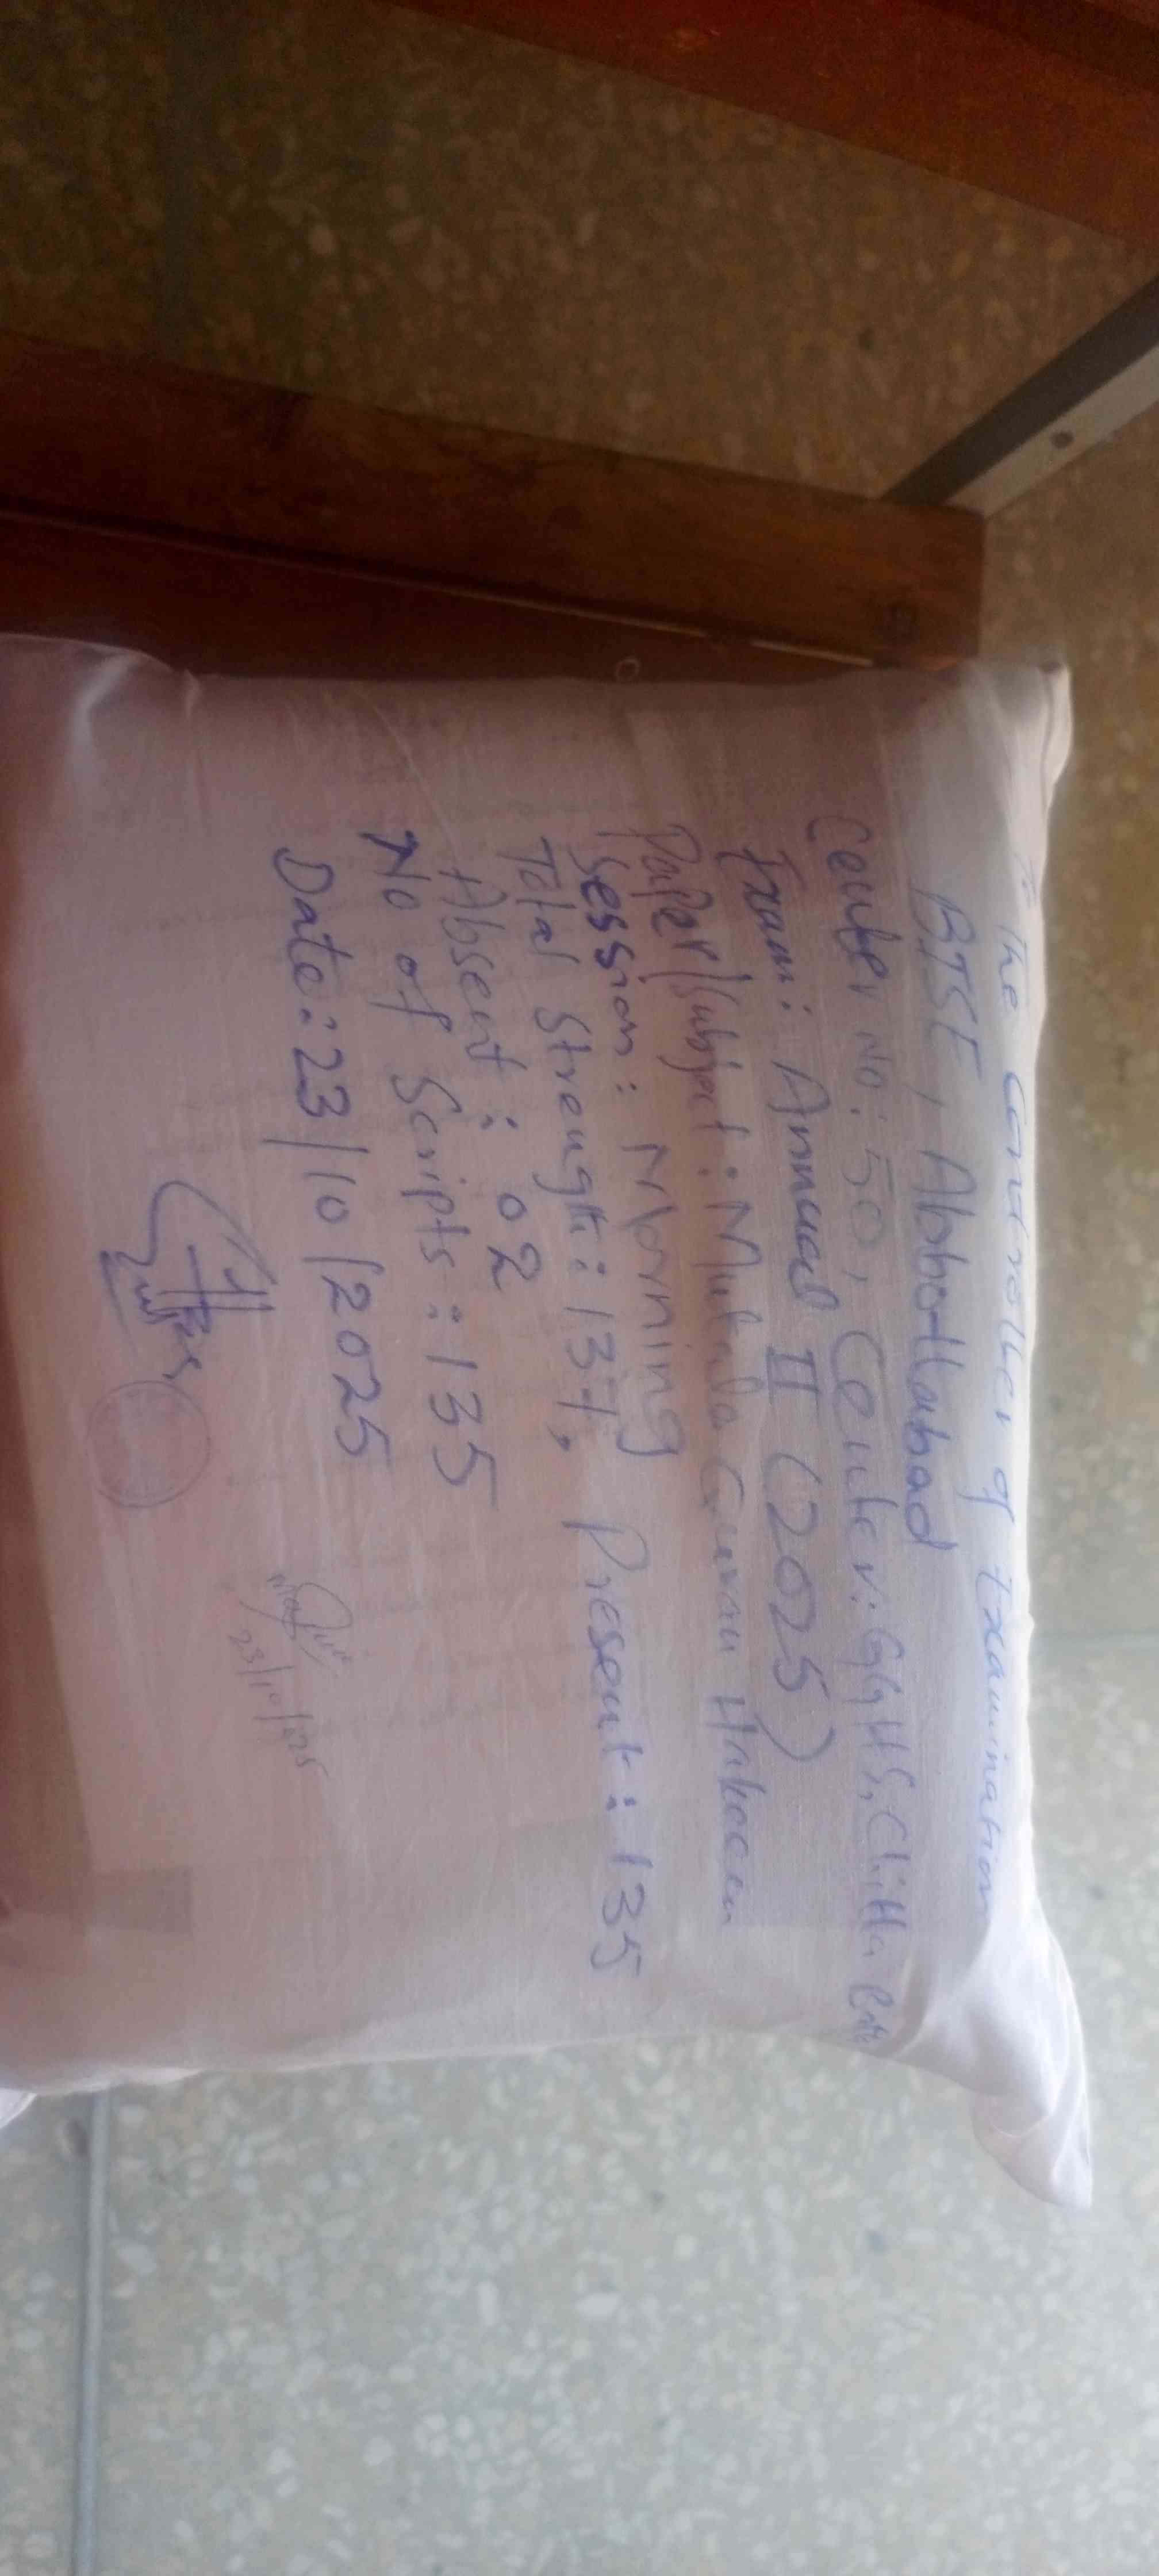 To The Controller of Examination
BISE, Abbottabad
Center No: 50, Center: GGHS, Chitta
Exam: Annual II (2025)
Paper/Subject: Mutala Quran Hakeem
Session: Morning
Total Strength: 137, Present: 135
Absent: 02
No of Scripts: 135
Date: 23/10/2025
23/10/025